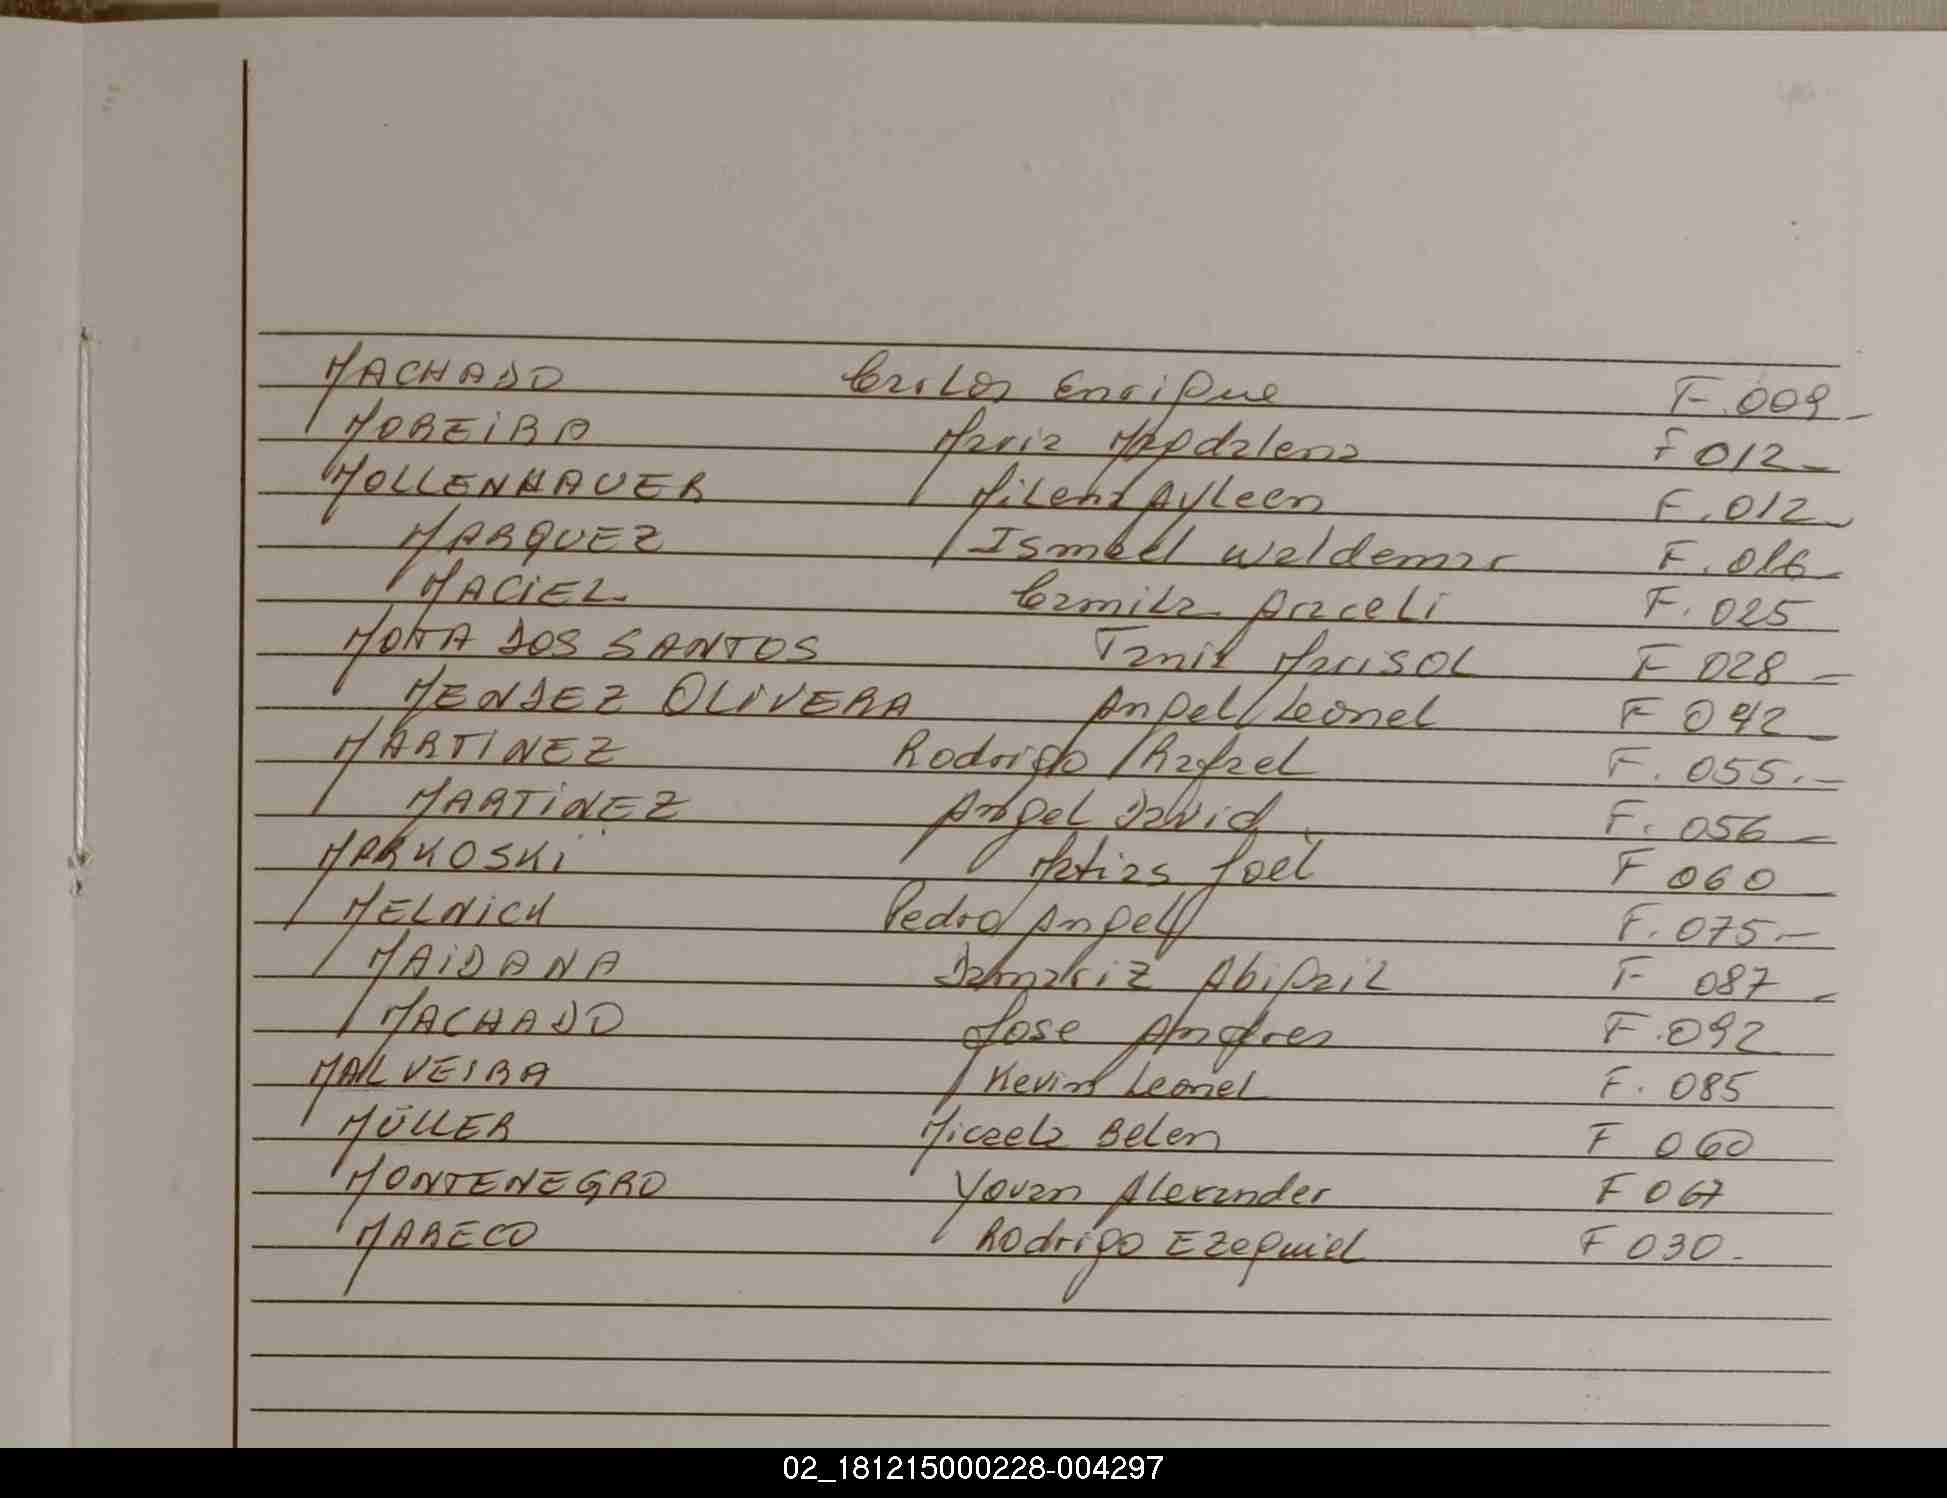 MACHADO Carlos Enrique F.009-
MOREIRA Maria Magdalena F 012-
MOLLENHAUER Milena Ayleen F.012-
MARQUEZ Ismael Waldemar F.016-
MACIEL Camila Araceli F.025
MOTTA DOS SANTOS Tania Marisol F 028-
MENDEZ OLIVERA Angel Leonel F 042-
MARTINEZ Rodrigo Rafael F.055.-
MARTINEZ Angel David F.056-
MARKOSKI Matias Joel F 060
MELNICK Pedro Angel F.075.-
MAIDANA Damariz Abigail F 087-
MACHADO Jose Andres F.092
MALVEIRA Kevin Leonel F.085
MÜLLER Micaela Belen F 060
MONTENEGRO Yovan Alexander F 067
MARECO Rodrigo Ezequiel F 030-
02_181215000228-004297